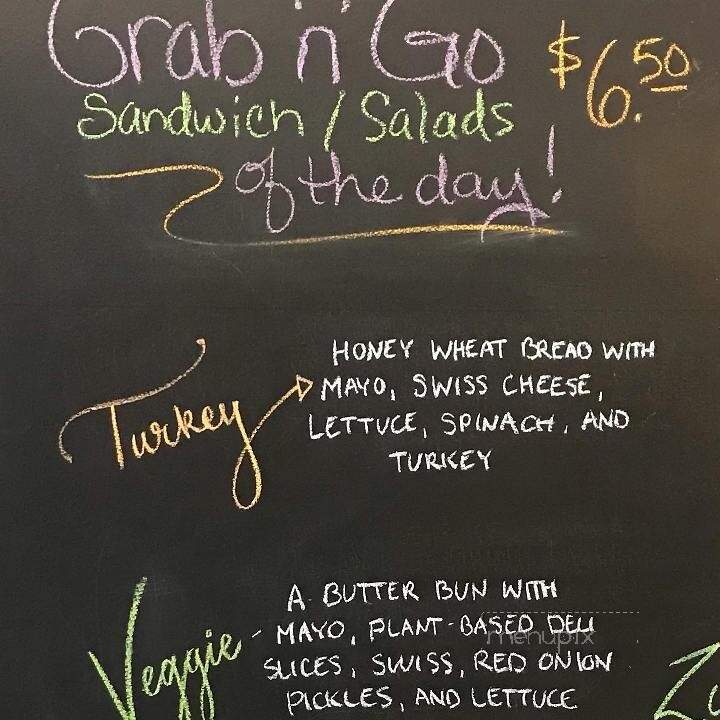 Grab n' Go $6.50
Sandwich / Salads
of the day!
Turkey
HONEY WHEAT BREAD WITH
MAYO, SWISS CHEESE,
LETTUCE, SPINACH, AND
TURKEY
Veggie -
A BUTTER BUN WITH
MAYO, PLANT-BASED DELI
SLICES, SWISS, RED ONION
PICKLES, AND LETTUCE
menupix